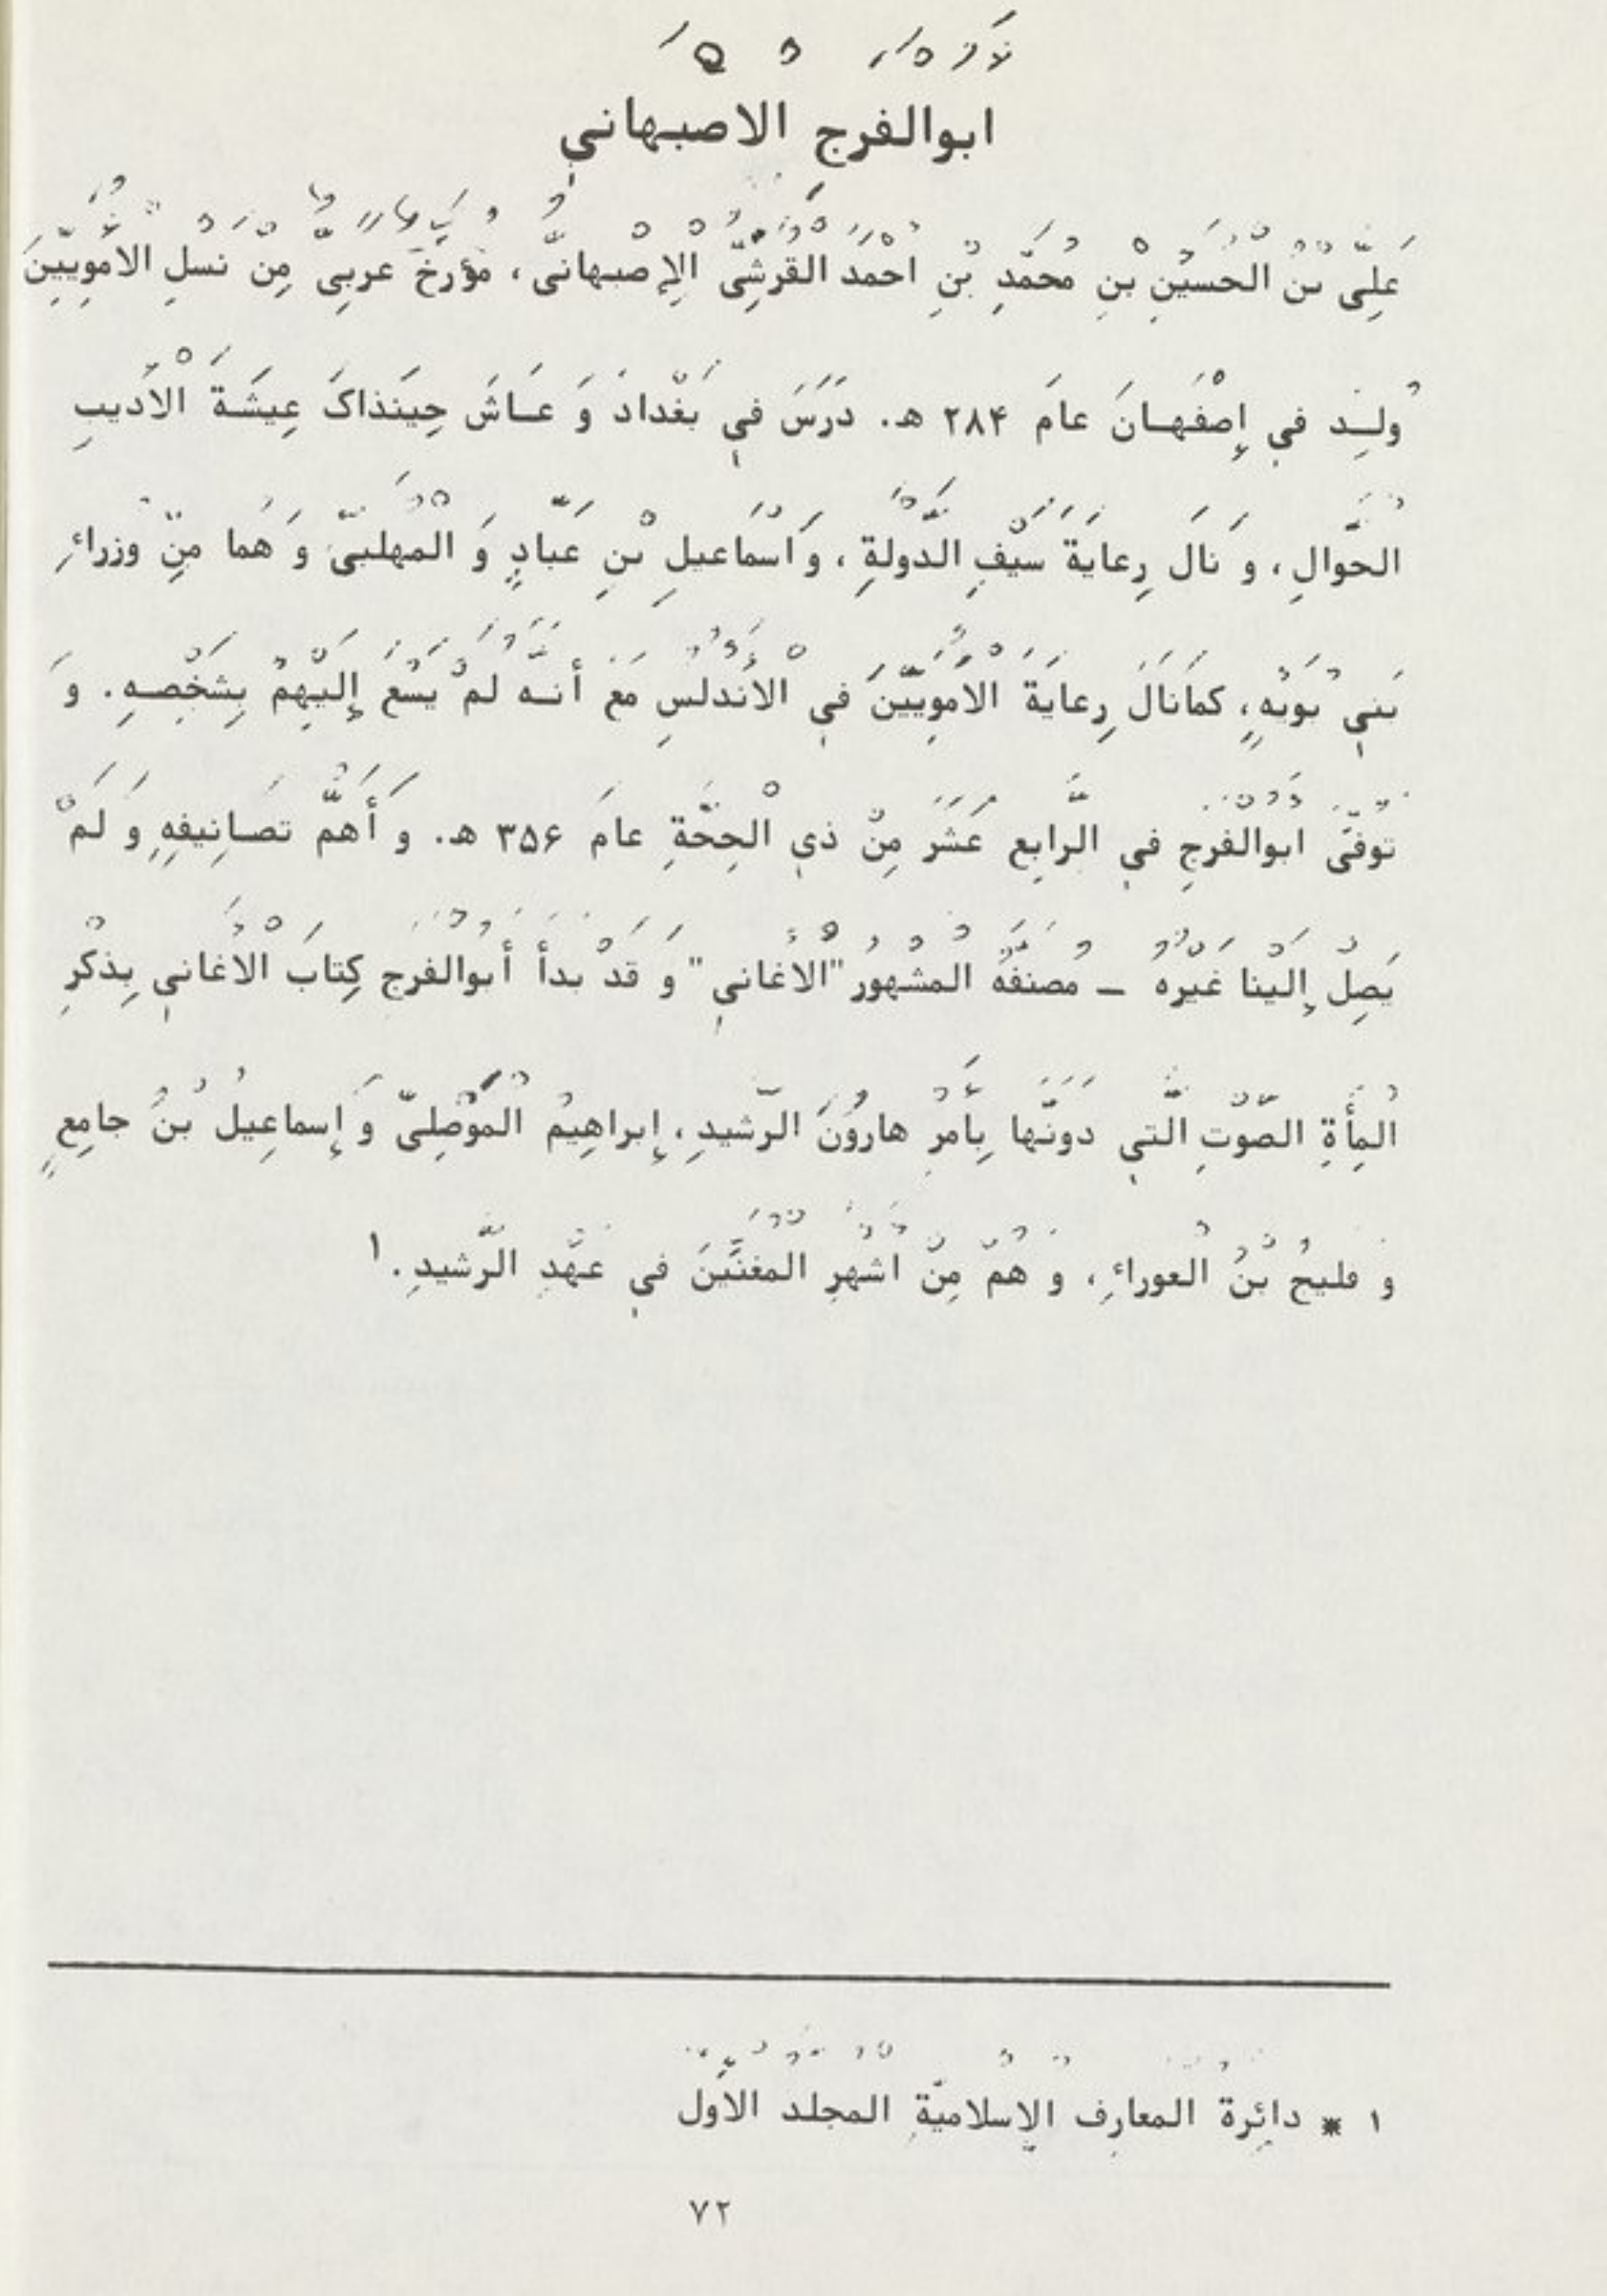 ابوالفرجِ الاصبهاني
عَلِىُّ بْنُ الْحُسَيْنِ بْنِ مُحَمَّدِ بْنِ اَحْمَدَ الْقُرَشِىُّ الْإِصْبهانىُّ ، مُؤَرِّخٌ عَرَبِىٌّ مِنْ نَسْلِ الْأُمَوِيّينَ
وُلِـدَ في إِصْفَهـانَ عامَ ۲۸۴ هـ. دَرَسَ في بَغْدادَ وَ عـاشَ حِينَذاكَ عِيشَـةَ الْأَديبِ
الْجَوّالِ، وَ نالَ رِعايَةَ سَيْفِ الدَّوْلَةِ ، وَ اسْماعيلِ بْنِ عَبّادٍ وَ الْمُهَلَّبىِّ وَ هُما مِنْ وُزَراءِ
بَنِي بُوَيْهٍ، كَمانالَ رِعايَةَ الْأُمَوِيّينَ فِي الْأَنْدَلُسِ مَعَ أَنَّـهُ لَمْ يَسْعَ إِلَيْهِمْ بِشَخْصِـهِ. وَ
تُوُفِّىَ ابوالْفَرَجِ في الرّابِعِ عَشَرَ مِنْ ذي الْحِجَّةِ عامَ ۳۵۶ هـ. وَ أَهَمُّ تَصـانِيفِهِ وَ لَمْ
يَصِلْ إِلَيْنا غَيْرُهُ ـ مُصَنَّفُهُ الْمَشْهُورُ "الْأَغانِي" وَ قَدْ بَدَأَ أَبُوالْفَرَجِ كِتابَ الْأَغاني بِذِكْرِ
الْمِأَةِ الصَّوْتِ الَّتي دَوَّنَها بِأَمْرِ هارُونَ الرَّشيدِ، إِبراهِيمُ الْمَوْصِلىُّ وَ إِسماعِيلُ بْنُ جامِعٍ
وَ فُلَيحُ بْنُ الْعَوراءِ، وَ هُمْ مِنْ أَشْهَرِ الْمُغَنّينَ في عَهْدِ الرَّشيدِ. ۱
۱ * دائِرة المعارِف الإسلاميّة المجلد الأول
۷۲